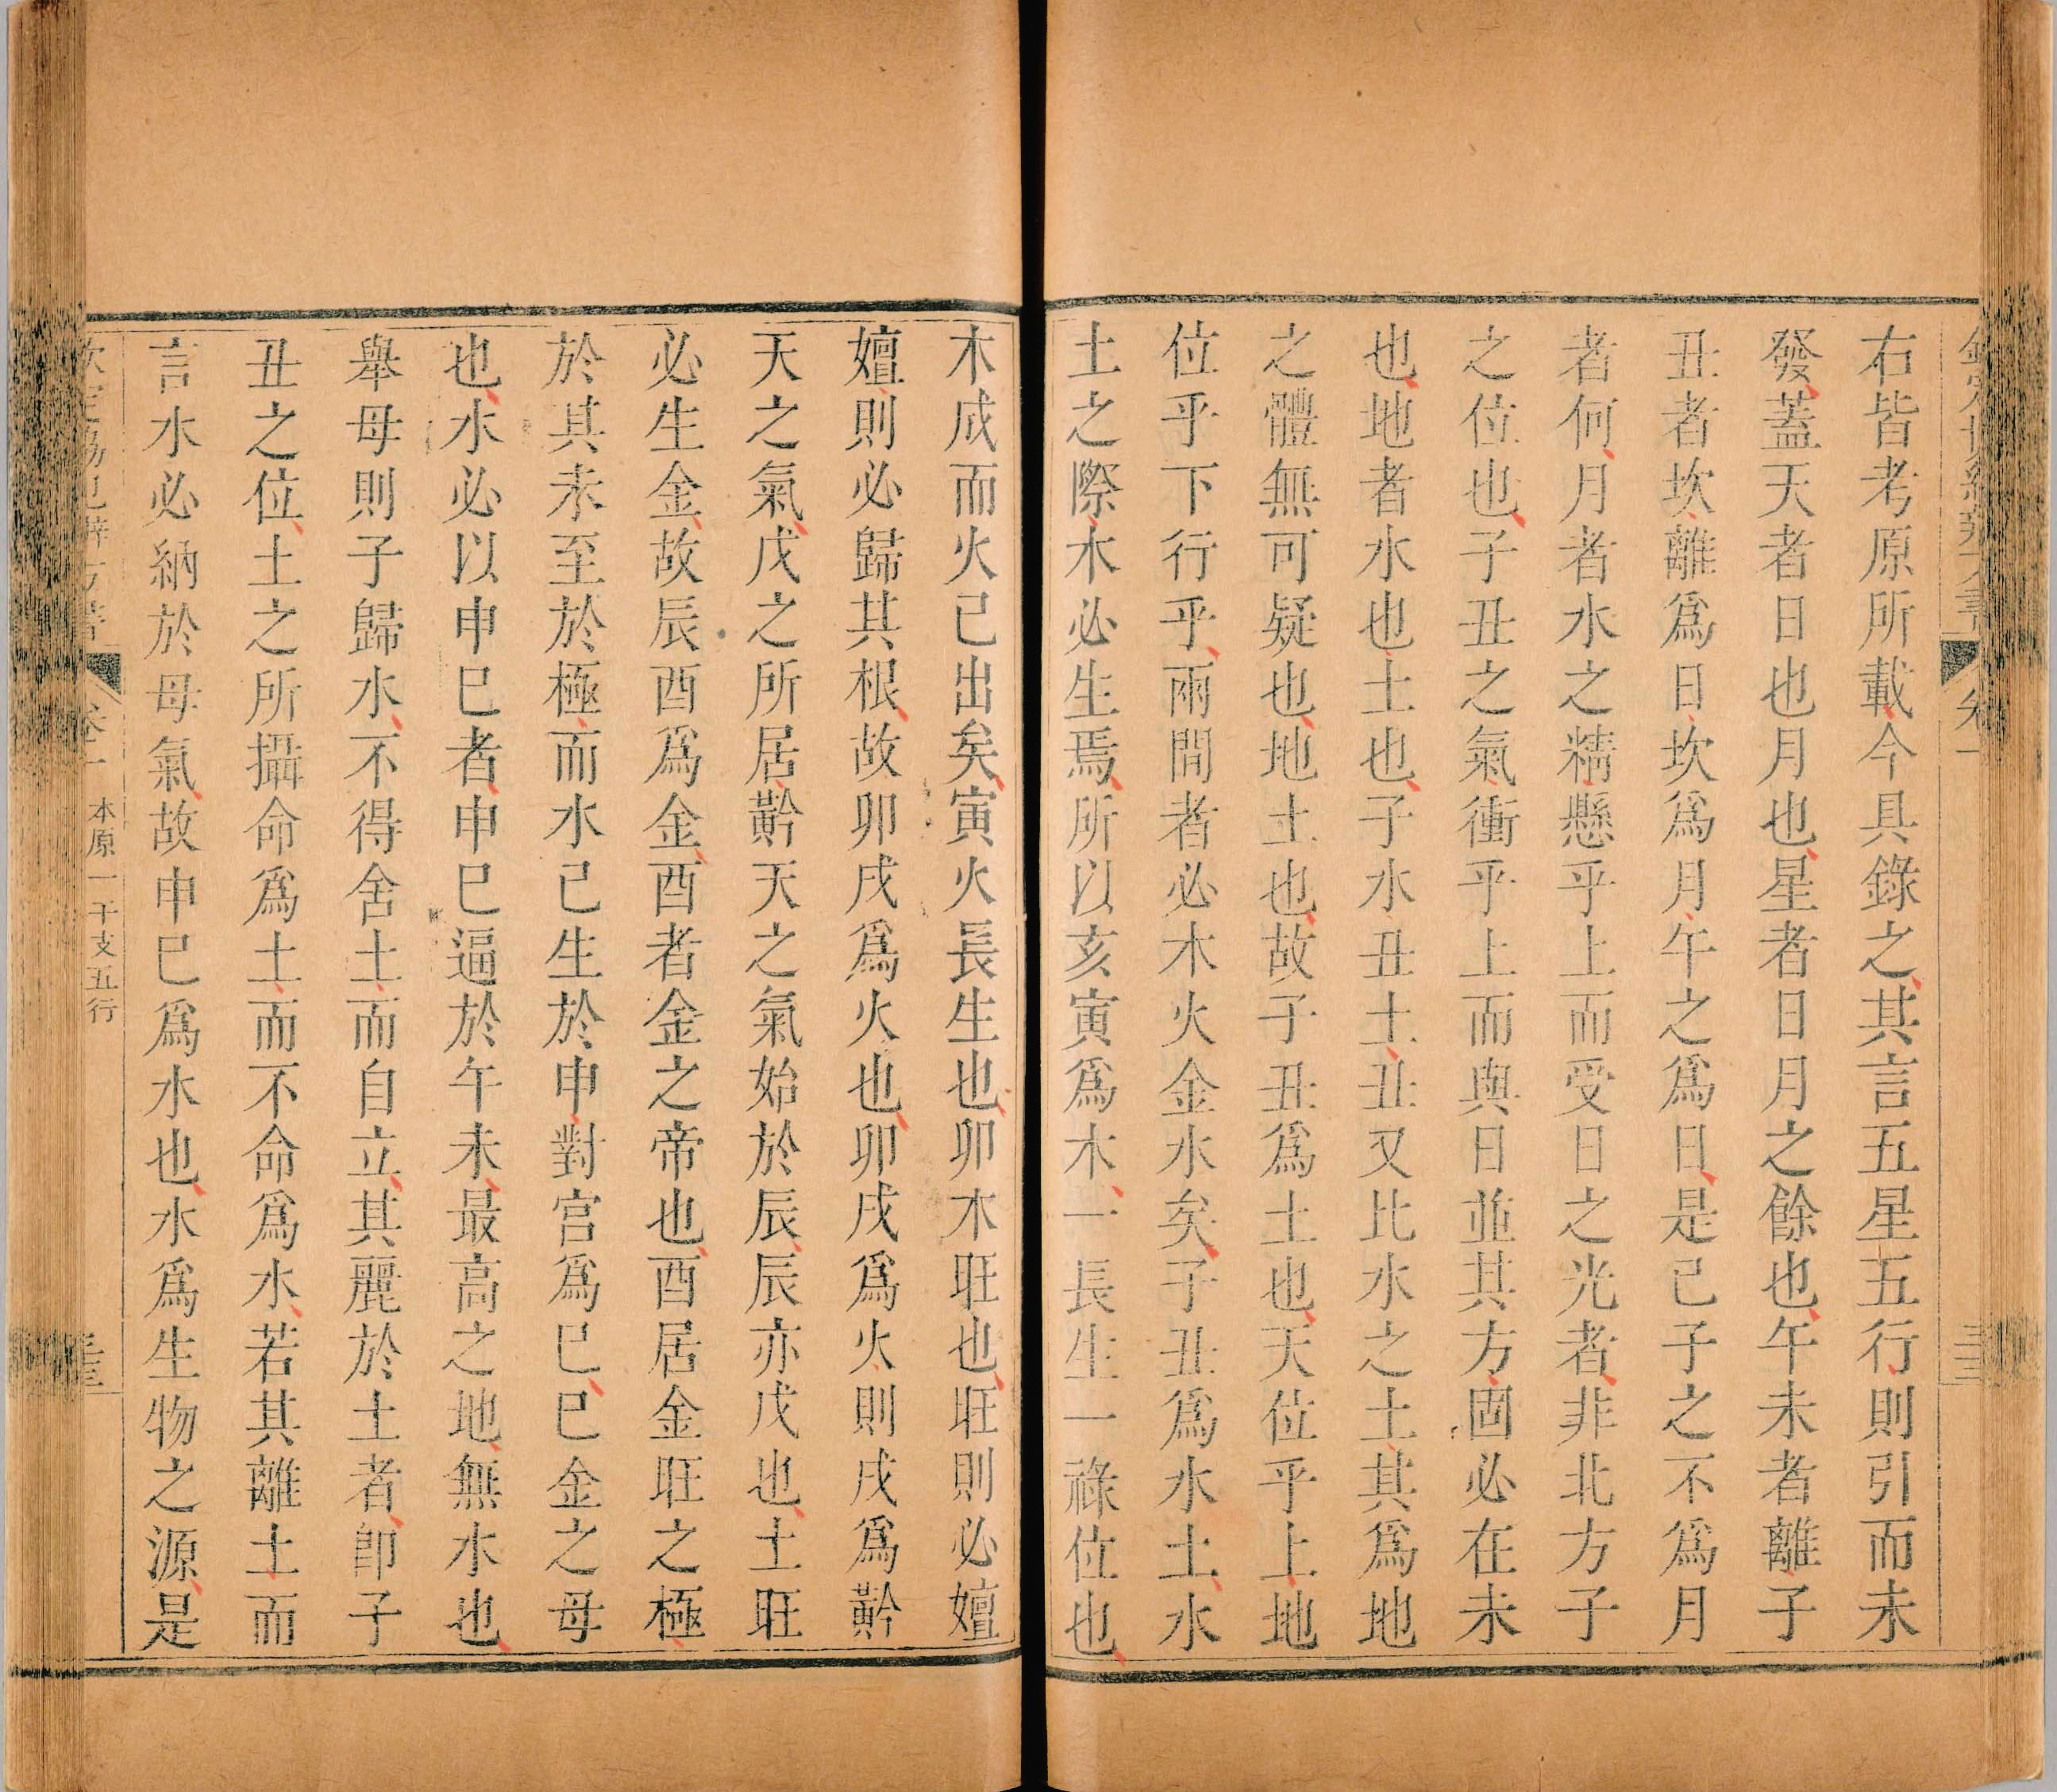 右皆考原所載今具錄之其言五星五行則引而未
發蓋天者日也月也星者日月之餘也午未者離子
丑者坎離爲日坎爲月午之爲日是已子之不爲月
者何月者水之精懸乎上而受日之光者非北方子
之位也子丑之氣衝乎上而與日並其方固必在未
也地者水也土也子水丑土丑又比水之土其爲地
之體無可疑也地土也故子丑爲土也天位乎上地
位乎下行乎兩間者必木火金水矣子丑爲水土水
土之際木必生焉所以亥寅爲木一長生一祿位也
木成而火已出矣寅火長生也卯木旺也旺則必嬗
嬗則必歸其根故卯戌爲火也卯戌爲火則戌爲黅
天之氣戊之所居黅天之氣始於辰辰亦戊也土旺
必生金故辰酉爲金酉者金之帝也酉居金旺之極
於其未至於極而水已生於申對宮爲巳巳金之母
也水必以申巳者申巳逼於午未最高之地無水也
舉母則子歸水不得舍土而自立其麗於土者卽子
丑之位土之所攝命爲土而不命爲水若其離土而
言水必納於母氣故申巳爲水也水爲生物之源是
卷一
本原一干支五行